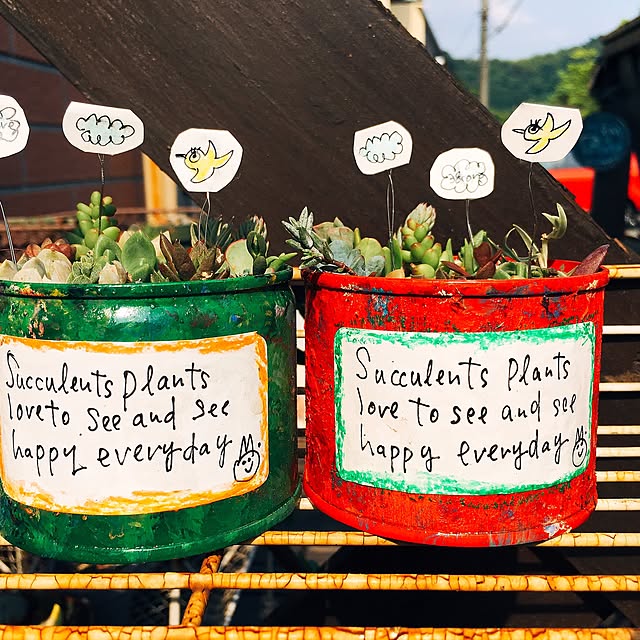 Succulents plants
love to see and see
happy everyday
Succulents plants
love to see and see
happy everyday